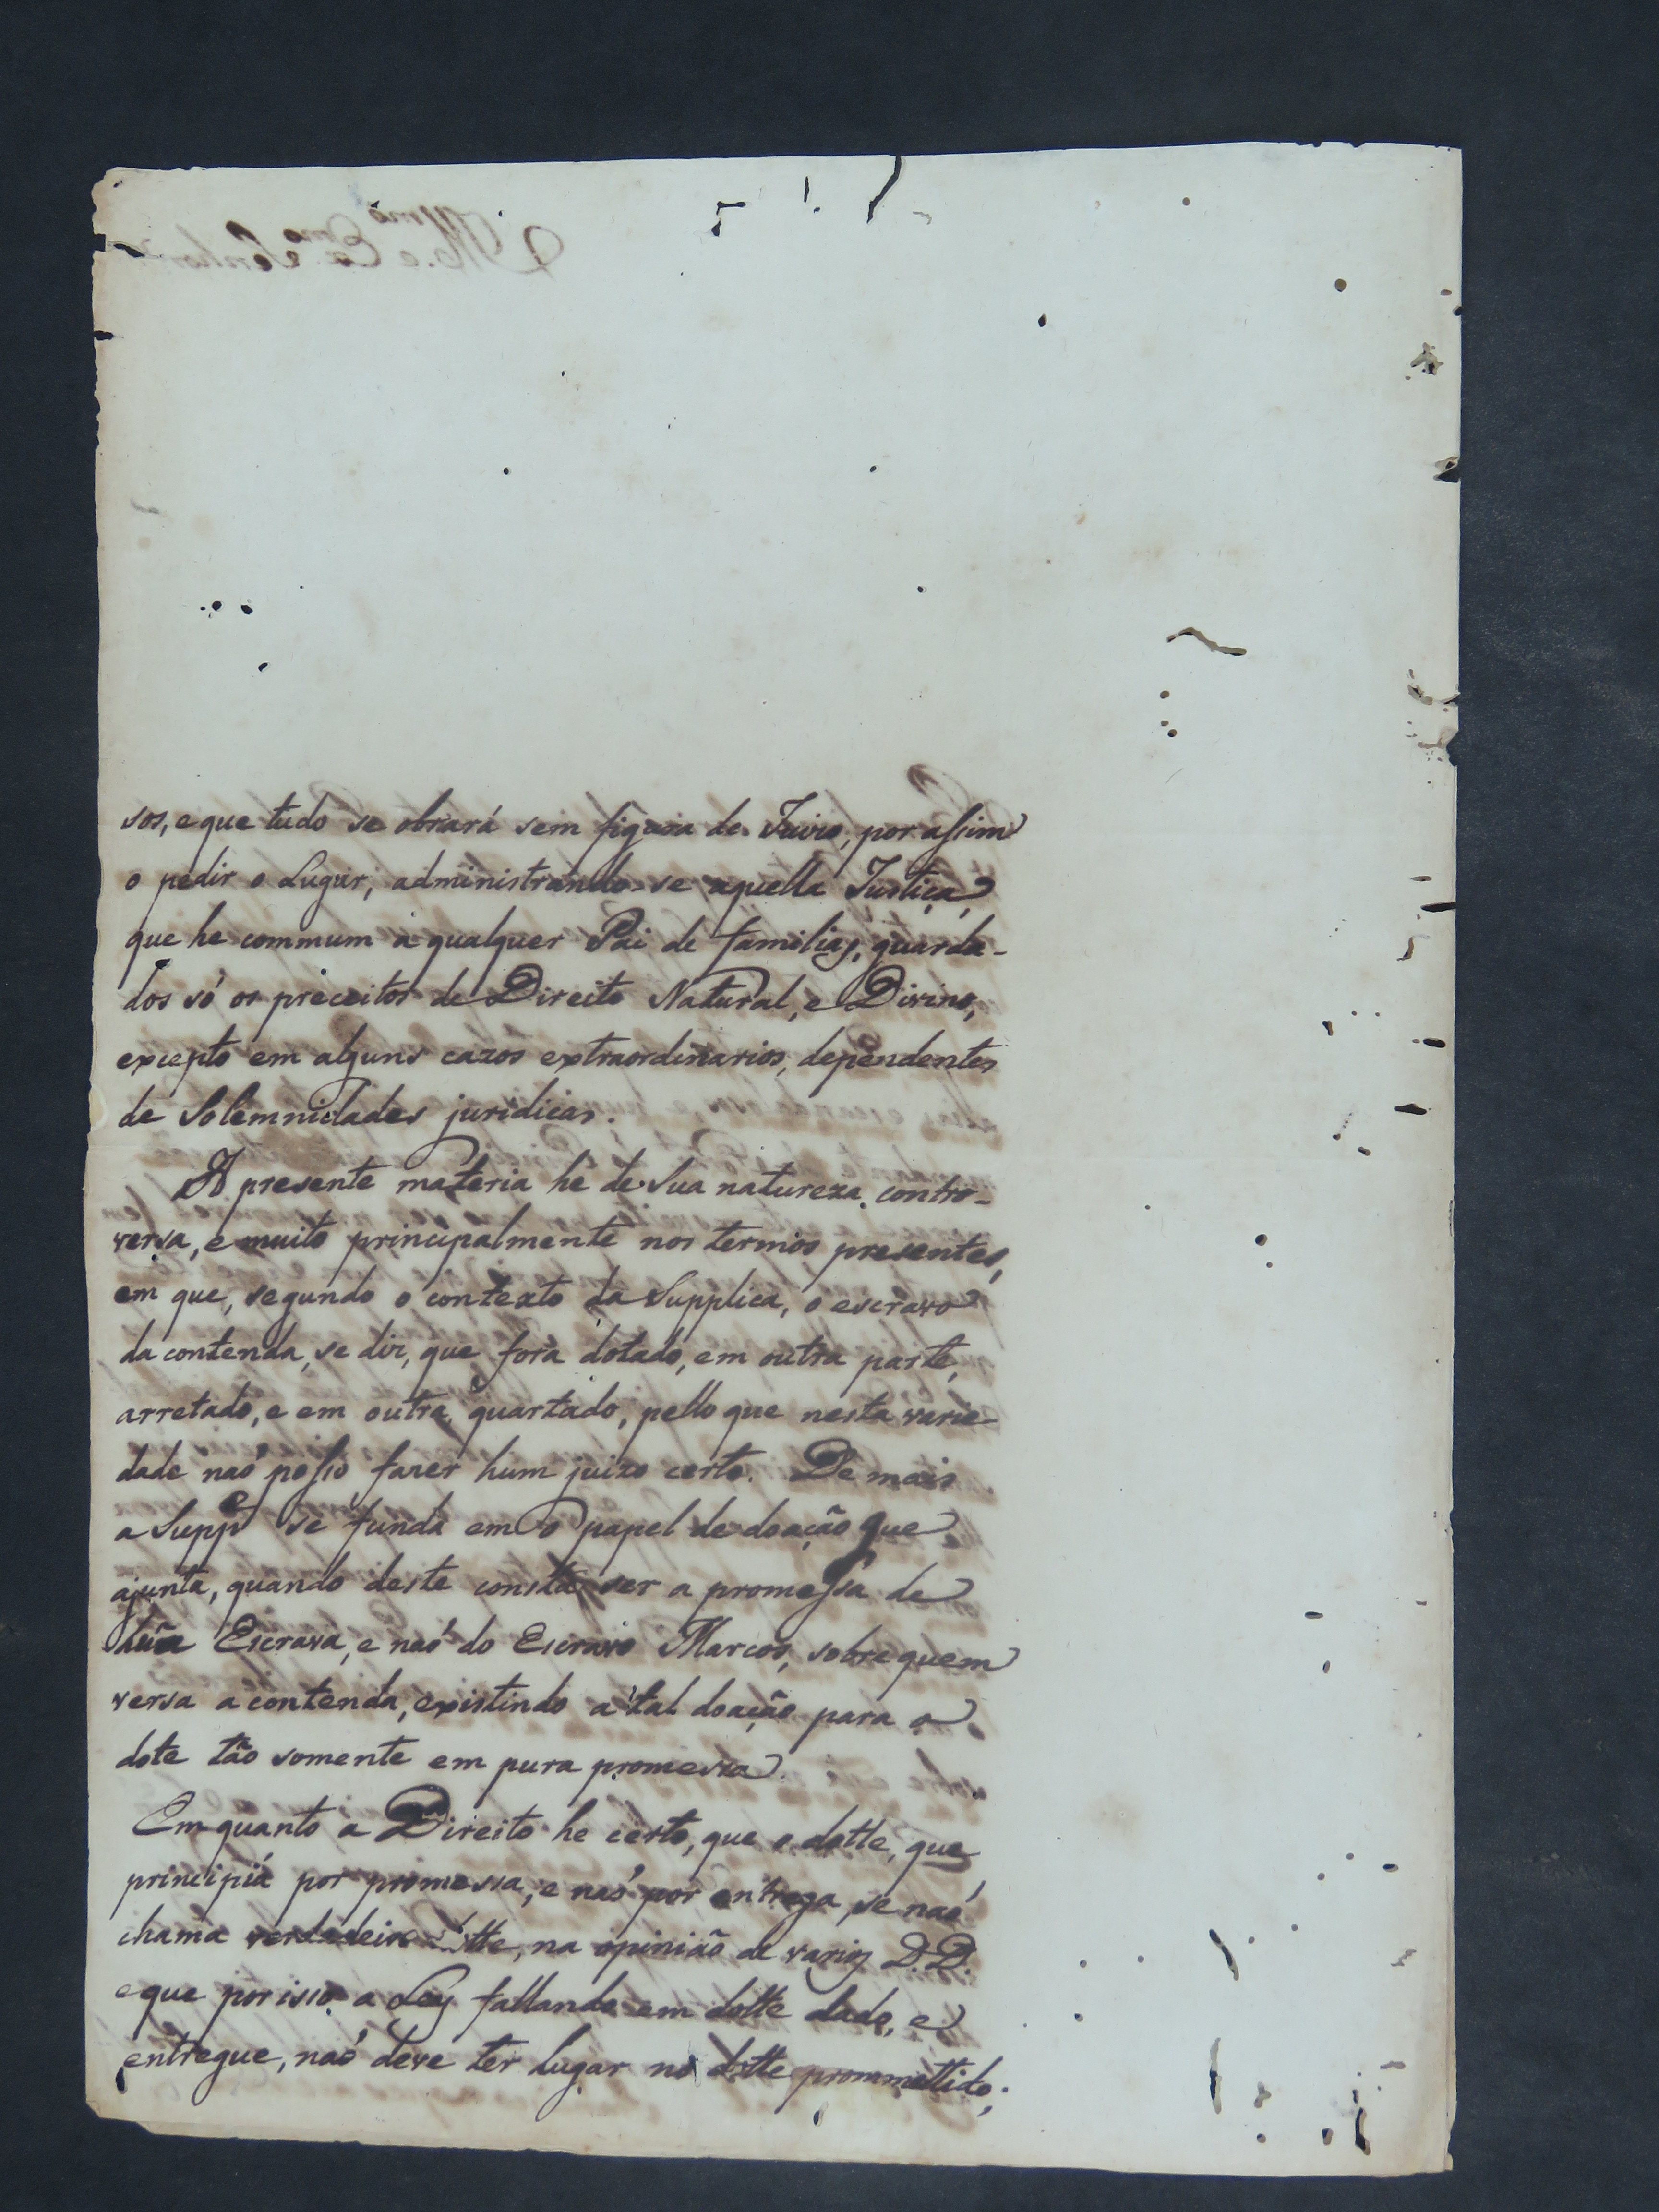 sos, e que tudo se obrará sem figura de Juizo, por assim
o pedir o Lugar; administrando-se aquella Justiça,
que he commum a qualquer Pai de familias, guarda-
dos só os preceitos de Direito Natural, e Divino,
excepto em alguns cazos extraordinarios, dependentes
de Solemnidades juridicas.
A presente materia he de Sua natureza contro-
versa, e muito principalmente nos termos presentes,
em que, segundo o contexto da Supplica, o escravo
da contenda, se diz, que fora dotado, em outra parte,
arretado, e em outra quartado, pello que nesta varie-
dade naõ posso fazer hum juizo certo. De mais
a Supp.e se funda em o papel de doação que
ajunta, quando deste consta ser a promessa de
hũa Escrava, e naõ do Escravo Marcos, sobre quem
versa a contenda, existindo a tal doação para o
dote tão somente em pura promessa.
Em quanto a Direito he certo, que o dotte, que
principiá por promessa, e naõ por entrega, se naõ
chama verdadeiro dotte, na opinião de varios D.D.
e que por isso a Ley fallando em dotte dado, e
entregue, naõ deve ter lugar no dotte prommettido;